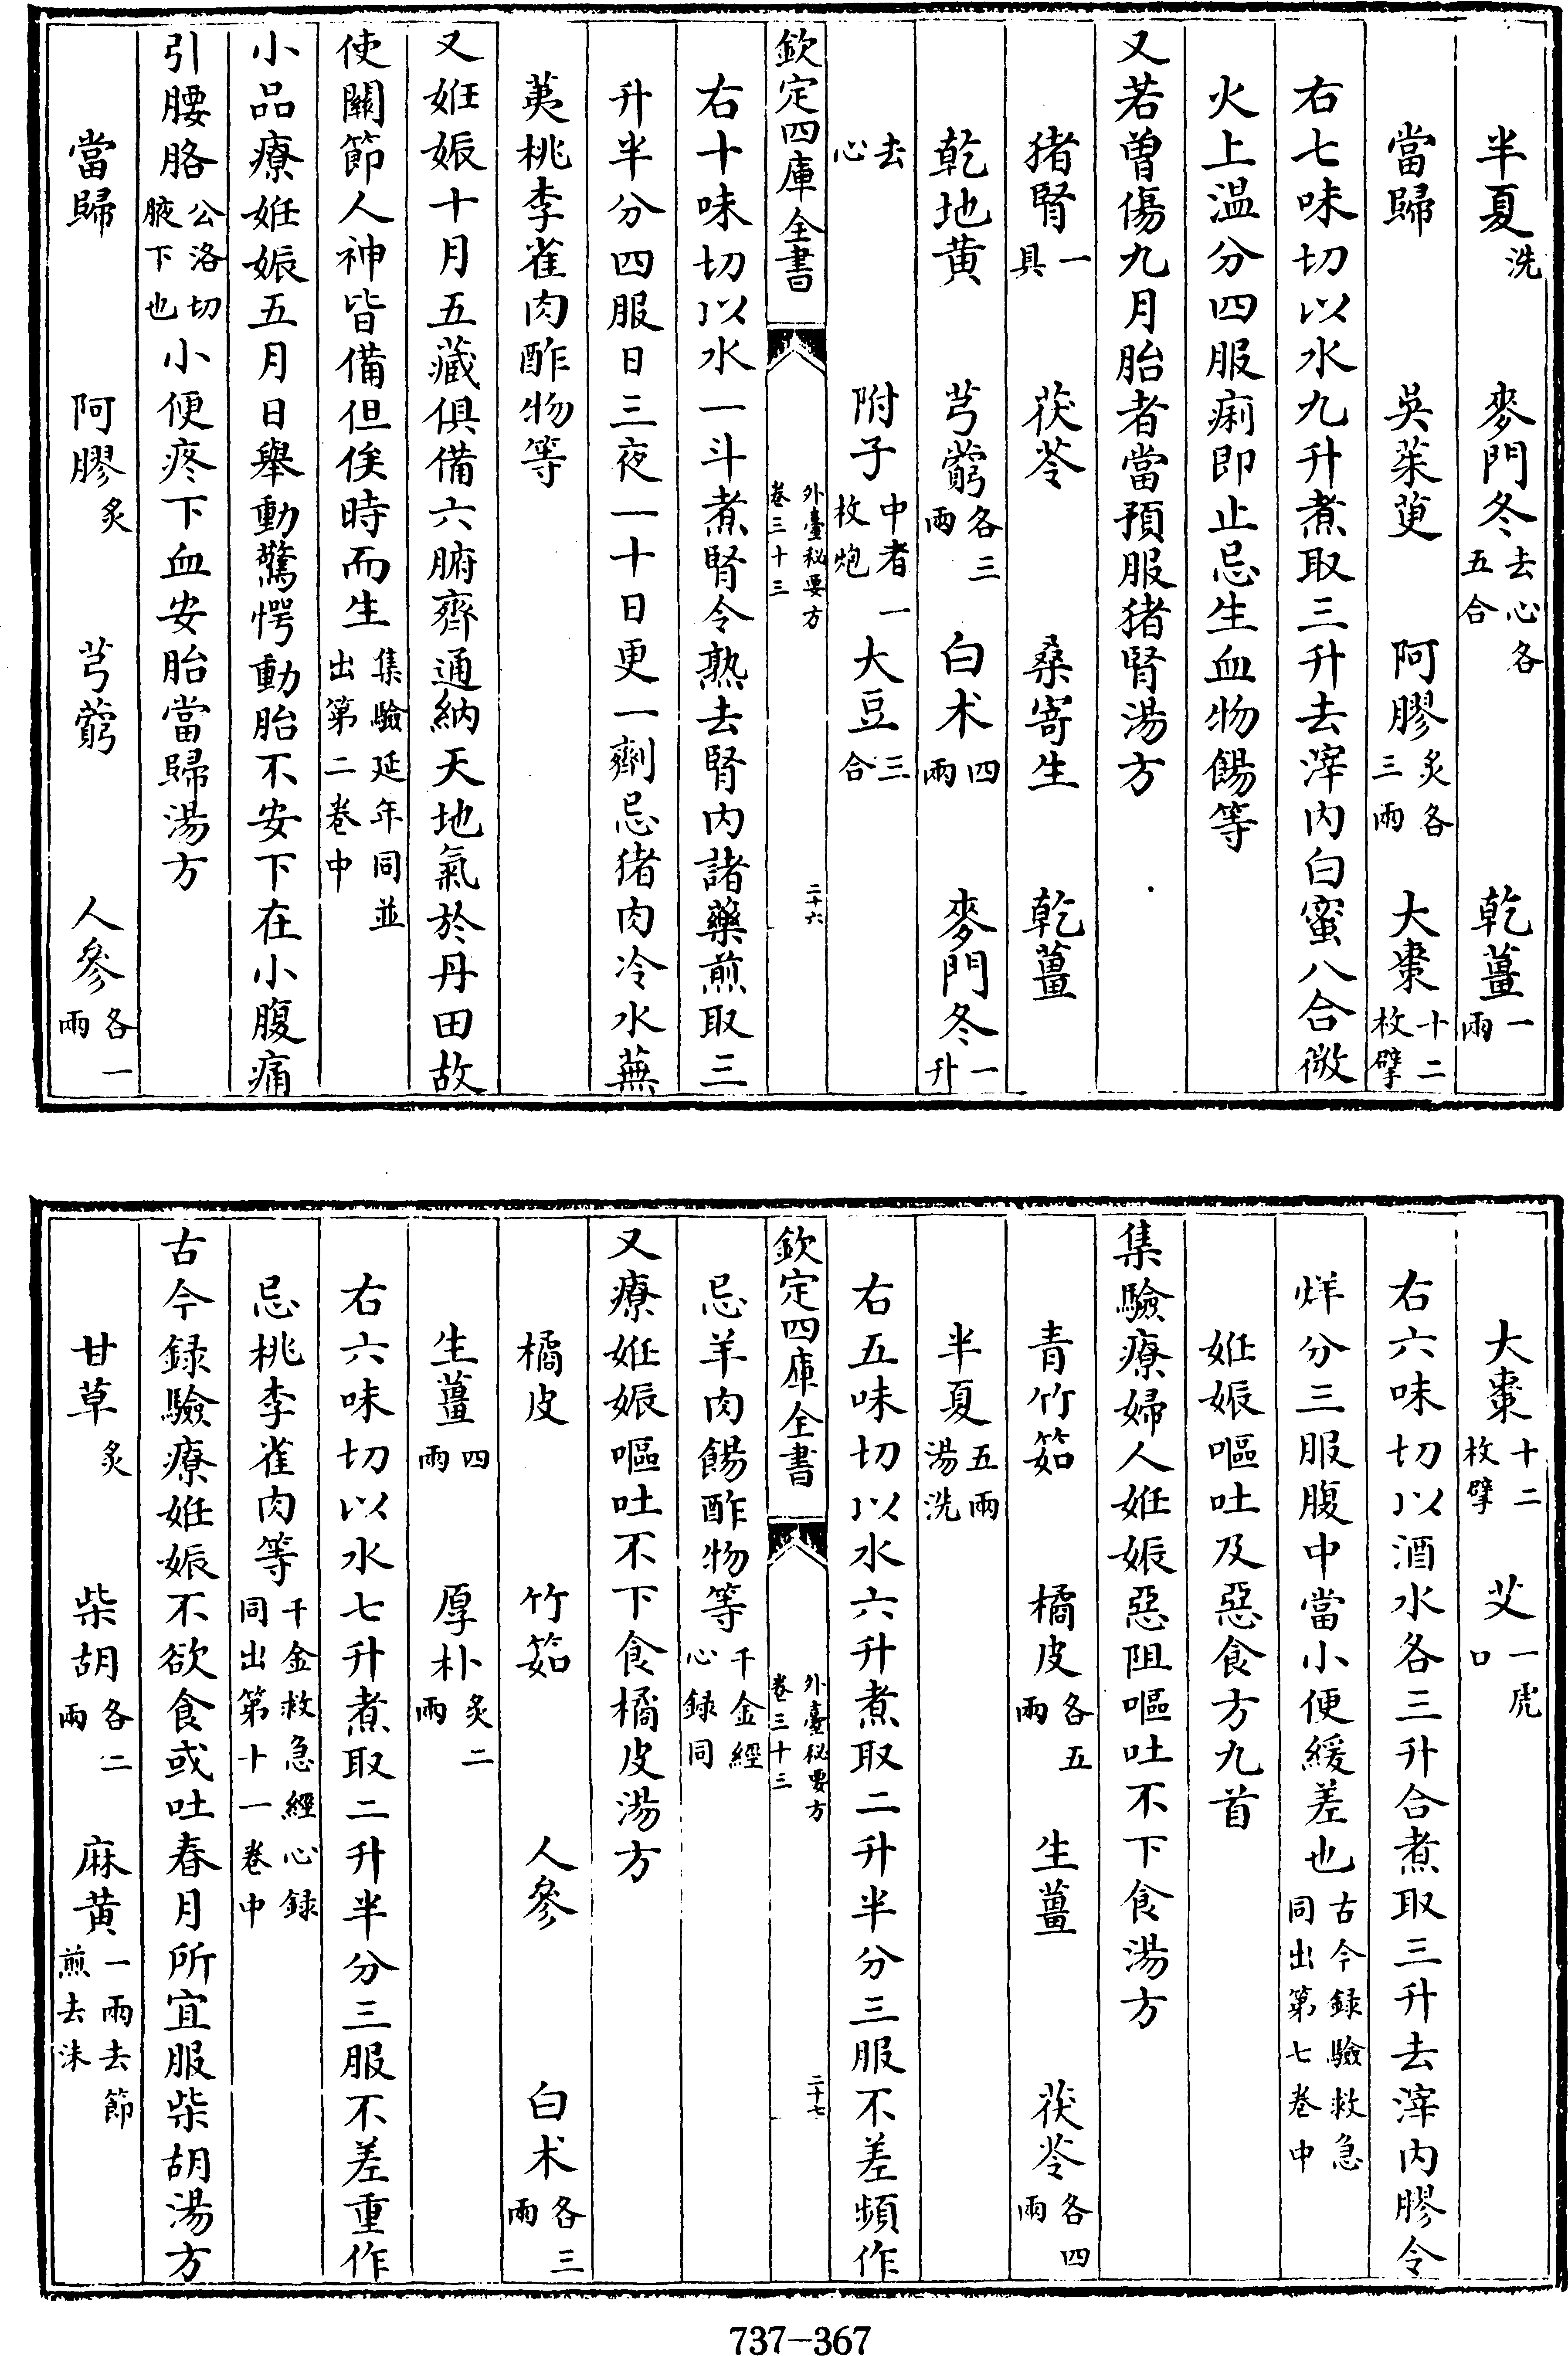 半夏洗　麥門冬去心各五合　乾薑一兩
當歸　吳茱萸　阿膠炙各三兩　大棗十二枚擘
右七味切以水九升煮取三升去滓内白蜜八合微
火上温分四服痢即止忌生血物餳等
又若曽傷九月胎者當預服猪腎湯方
猪腎一具　茯苓　桑寄生　乾薑
乾地黄　芎藭各三兩　白术四兩　麥門冬一升
去心　附子中者一枚炮　大豆三合
欽定四庫全書　外臺秘要方卷三十三　二十六
右十味切以水一斗煮腎令熟去腎内諸藥煎取三
升半分四服日三夜一十日更一劑忌猪肉冷水蕪
荑桃李雀肉酢物等
又姙娠十月五藏俱備六腑齊通納天地氣於丹田故
使關節人神皆備但俟時而生集驗延年同並出第二巻中
小品療姙娠五月日舉動驚愕動胎不安下在小腹痛
引腰胳公洛切腋下也小便疼下血安胎當歸湯方
當歸　阿膠炙　芎藭　人參各一兩
大棗十二枚擘　艾一虎口
右六味切以酒水各三升合煮取三升去滓内膠令
烊分三服腹中當小便緩差也古今録驗救急同出第七巻中
姙娠嘔吐及惡食方九首
集驗療婦人姙娠惡阻嘔吐不下食湯方
青竹筎　橘皮各五兩　生薑　茯苓各四兩
半夏五兩湯洗
右五味切以水六升煮取二升半分三服不差頻作
欽定四庫全書　外臺秘要方卷三十三　二十七
忌羊肉餳酢物等千金經心録同
又療姙娠嘔吐不下食橘皮湯方
橘皮　竹筎　人參　白术各三兩
生薑四兩　厚朴炙二兩
右六味切以水七升煮取二升半分三服不差重作
忌桃李雀肉等千金救急經心録同出第十一巻中
古今録驗療姙娠不欲食或吐春月所宜服柴胡湯方
甘草炙　柴胡各二兩　麻黄一兩去節煎去沫
737—367